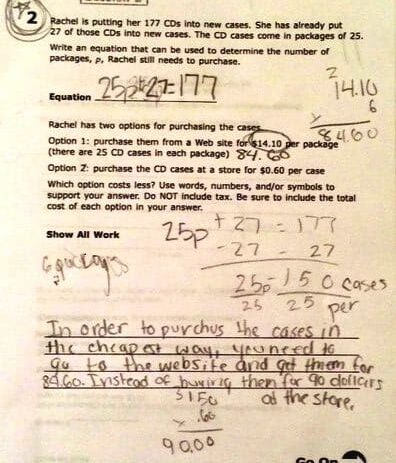 2
Rachel is putting her 177 CDs into new cases. She has already put
27 of those CDs into new cases. The CD cases come in packages of 25.
Write an equation that can be used to determine the number of
packages, p, Rachel still needs to purchase.
Equation 25p+27=177
2
14.10
x 6
84.60
Rachel has two options for purchasing the cases.
Option 1: purchase them from a Web site for $14.10 per package
(there are 25 CD cases in each package) 84.60
Option 2: purchase the CD cases at a store for $0.60 per case
Which option costs less? Use words, numbers, and/or symbols to
support your answer. Do NOT include tax. Be sure to include the total
cost of each option in your answer.
Show All Work
25p + 27 = 177
- 27 - 27
6 packages
25p = 150 cases
25 25 per
In order to purchus the cases in
the cheapest way, you need to
go to the website and get them for
84.60. Instead of buying them for 90 dollars
at the store.
$150
x .60
90.00
Go On